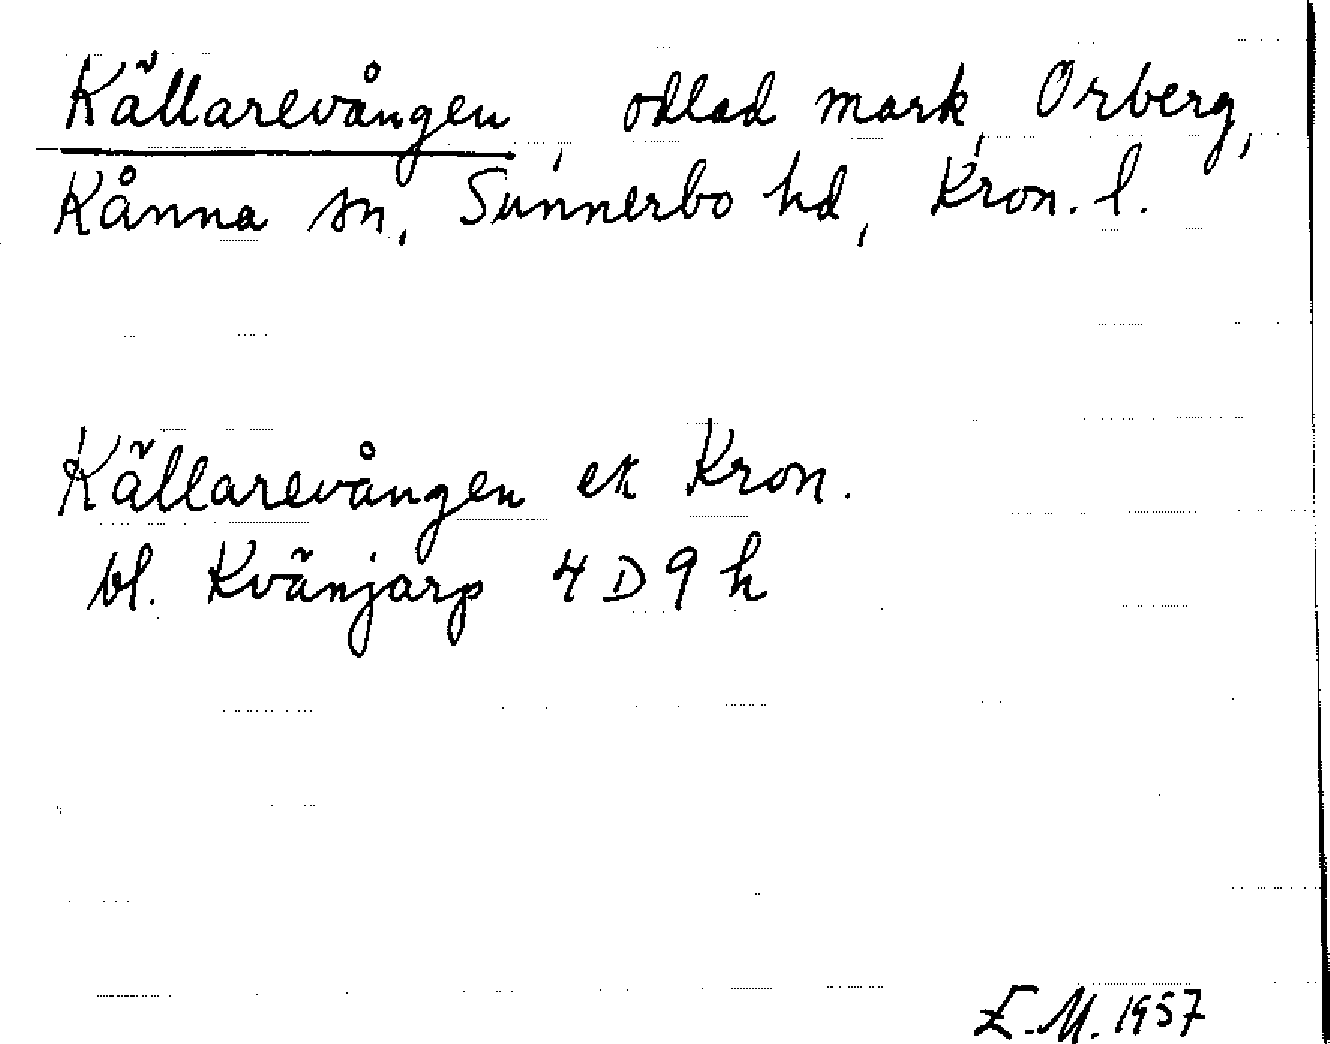 Källarevången, odlad mark, Orberg,
Kånna sn, Sunnerbo hd, Kron. l.
Källarevången ek Kron.
bl. Kvänjarp 4D9h
E.M. 1957